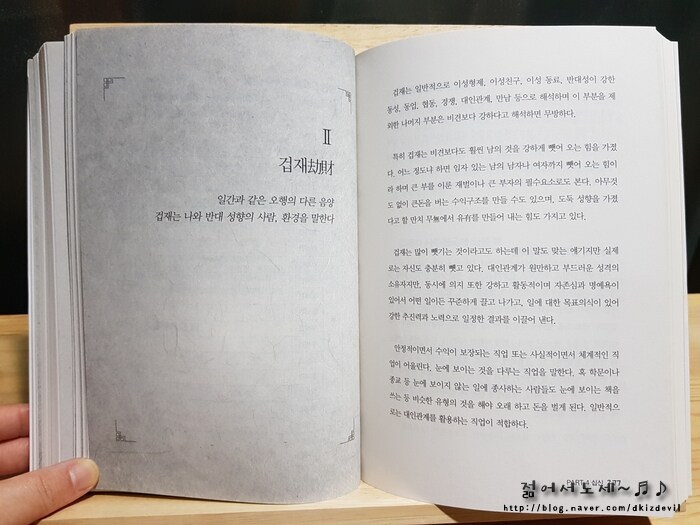 Ⅱ
겁재劫財
일간과 같은 오행의 다른 음양
겁재는 나와 반대 성향의 사람, 환경을 말한다
겁재는 일반적으로 이성형제, 이성친구, 이성 동료, 반대성이 강한
동성, 동업, 협동, 경쟁, 대인관계, 만남 등으로 해석하며 이 부분을 제
외한 나머지 부분은 비견보다 강하다고 해석하면 무방하다.
특히 겁재는 비견보다도 훨씬 남의 것을 강하게 뺏어 오는 힘을 가졌
다. 어느 정도냐 하면 임자 있는 남의 남자나 여자까지 뺏어 오는 힘이
라 하며 큰 부를 이룬 재벌이나 큰 부자의 필수요소로도 본다. 아무것
도 없이 큰돈을 버는 수익구조를 만들 수도 있으며, 도둑 성향을 가졌
다고 할 만치 무無에서 유有를 만들어 내는 힘도 가지고 있다.
겁재는 많이 뺏기는 것이라고도 하는데 이 말도 맞는 얘기지만 실제
로는 자신도 충분히 뺏고 있다. 대인관계가 원만하고 부드러운 성격의
소유자지만, 동시에 의지 또한 강하고 활동적이며 자존심과 명예욕이
있어서 어떤 일이든 꾸준하게 끌고 나가고, 일에 대한 목표의식이 있어
강한 추진력과 노력으로 일정한 결과를 이끌어 낸다.
안정적이면서 수익이 보장되는 직업 또는 사실적이면서 체계적인 직
업이 어울린다. 눈에 보이는 것을 다루는 직업을 말한다. 혹 학문이나
종교 등 눈에 보이지 않는 일에 종사하는 사람들도 눈에 보이는 책을
쓰는 등 비슷한 유형의 것을 해야 오래 하고 돈을 벌게 된다. 일반적으
로는 대인관계를 활용하는 직업이 적합하다.
PART 4 십신 277
젊어서노세~♬♪
http://blog.naver.com/dkizdevil